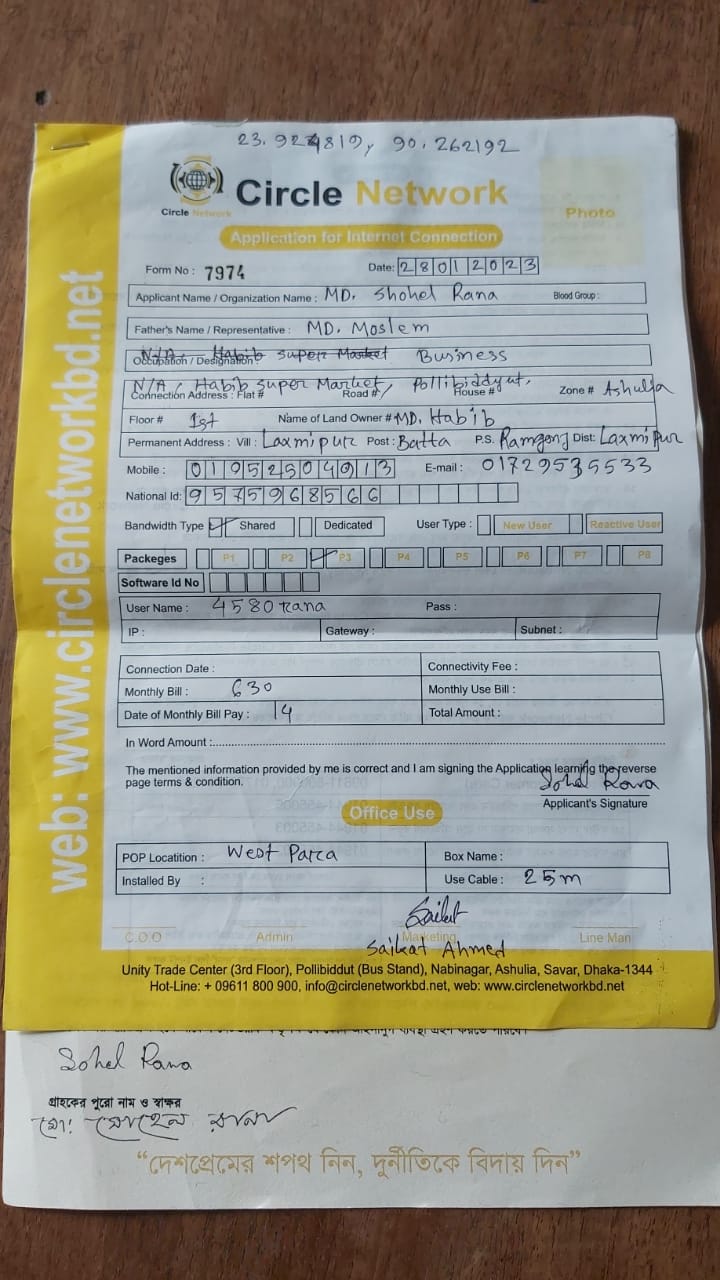 23.924819, 90.262192
Circle Network
Circle Network
Photo
Application for Internet Connection
Form No : 7974
Date: 28012023
Applicant Name / Organization Name : MD. Shohel Rana Blood Group :
Father's Name / Representative : MD. Moslem
Occupation / Designation : N/A, Habib Super Market Business
N/A, Habib Super Market, Pollibiddyut,
Connection Address : Flat # Road # House # Zone # Ashulia
Floor # 1st Name of Land Owner # MD. Habib
Permanent Address : Vill : Laxmipur Post : Batta P.S. Ramgonj Dist: Laxmipur
Mobile : 01952504913 E-mail : 01729535533
National Id: 9575968566
Bandwidth Type Shared Dedicated User Type : New User Reactive User
Packeges P1 P2 P3 P4 P5 P6 P7 P8
Software Id No
User Name : 4580rana Pass :
IP : Gateway : Subnet :
Connection Date : Connectivity Fee :
Monthly Bill : 630 Monthly Use Bill :
Date of Monthly Bill Pay : 14 Total Amount :
In Word Amount :
The mentioned information provided by me is correct and I am signing the Application learning the reverse
page terms & condition.
Sohel Rana
Applicant's Signature
Office Use
POP Locatition : West Parra Box Name :
Installed By : Use Cable : 25m
Saikat
C.O.O Admin Marketing Line Man
Saikat Ahmed
Unity Trade Center (3rd Floor), Pollibiddut (Bus Stand), Nabinagar, Ashulia, Savar, Dhaka-1344
Hot-Line: + 09611 800 900, info@circlenetworkbd.net, web: www.circlenetworkbd.net
web: www.circlenetworkbd.net
Sohel Rana
গ্রাহকের পুরো নাম ও স্বাক্ষর
মো: সোহেল রানা
“দেশপ্রেমের শপথ নিন, দুর্নীতিকে বিদায় দিন”